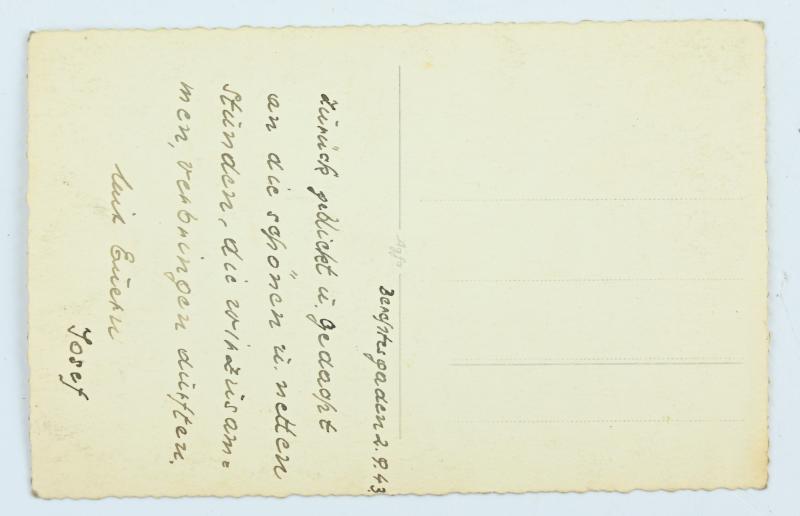 Agfa
Berchtesgaden 2.9.43
zurück geblickt u. gedacht
an die schönen u. netten
Stunden, die wir zusam=
men, verbringen durften.
Josef